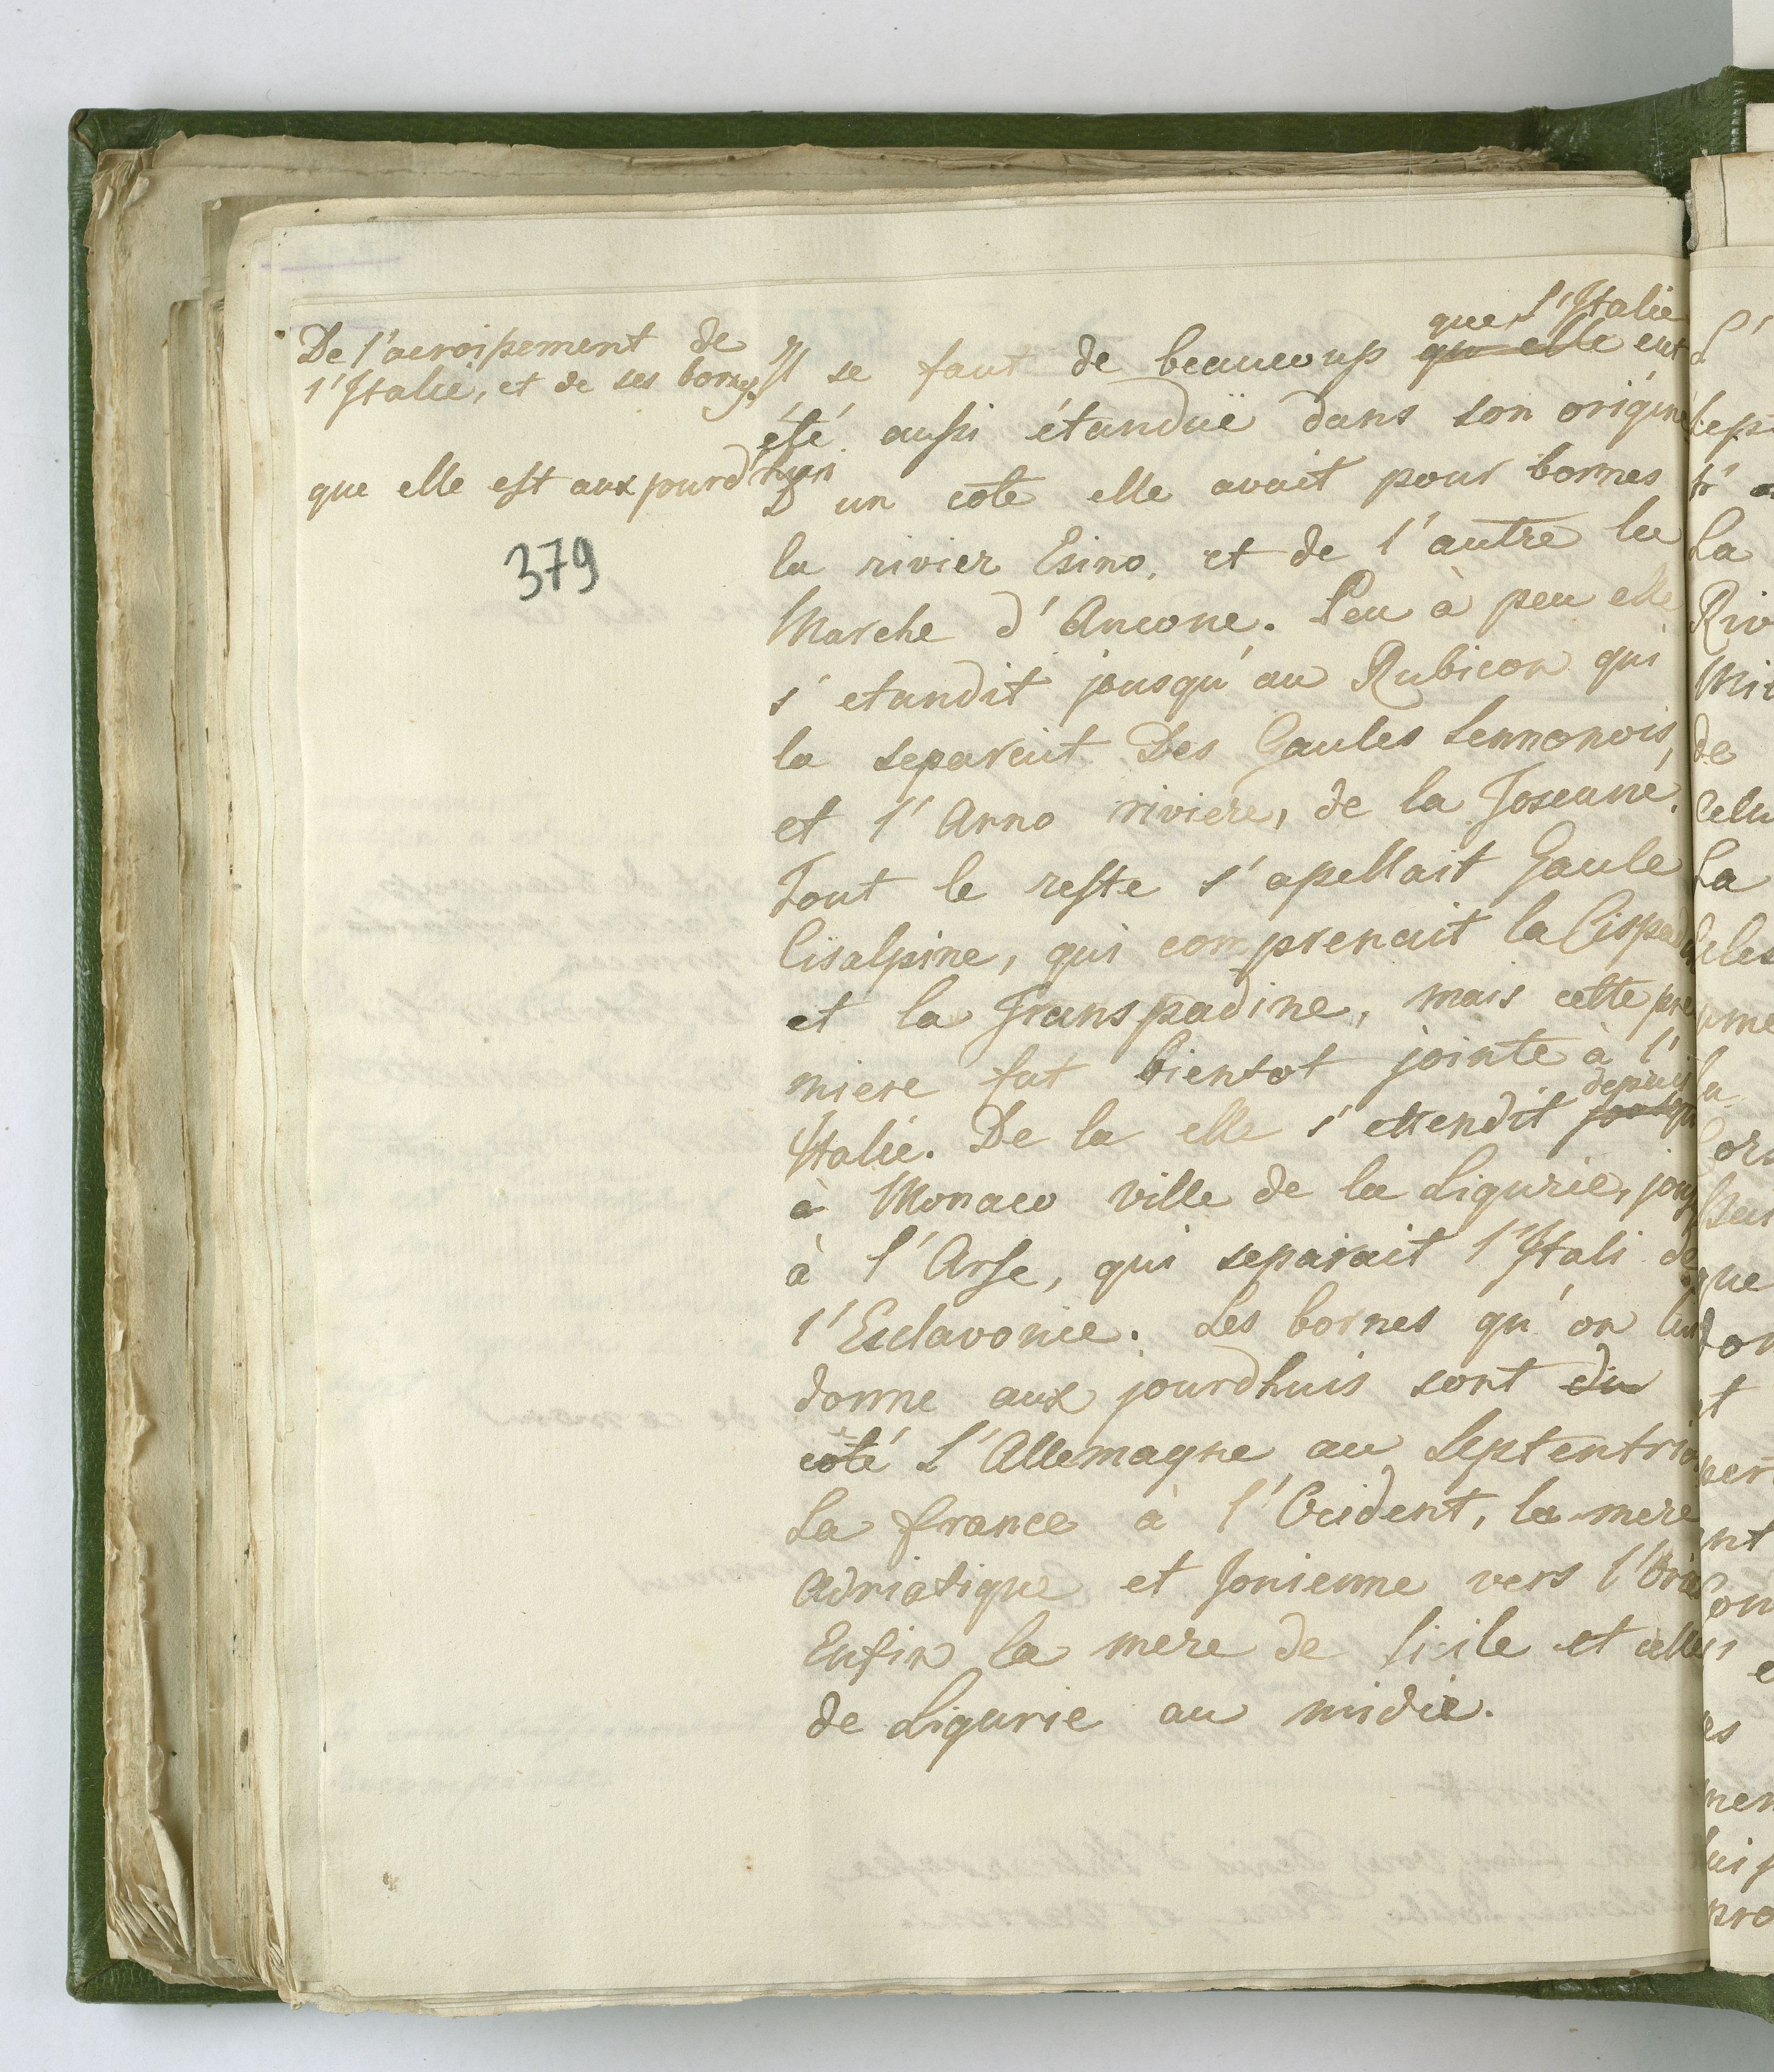 De l'acroisement de
l'Italie, et de ses bornes.
que elle est aux jourd'hui
379
que l'Italie
Il se faut de beaucoup qu elle eut
été aussi étanduë dans son origine
D'un coté elle avait pour bornes
la rivier Esino, et de l'autre la
Marche d'Ancone. Peu à peu elle
s'etandit jousqu'au Rubicon qui
la separeit Des Gaules Sennonois,
et l'Arno riviere, de la Toscane.
Tout le reste s'apellait Gaule
Cisalpine, qui comprenait la Cispad
et la Transpadine, mais cette pre
miere fut bientot jointe à l'
depuis
Italie. De la elle s'ettendit jousqu
à Monaco ville de la Ligurie, jousq
à l'Arse, qui separait l'Itali de
l'Esclavonie. Les bornes qu'on lui
donne aux jourdhuis sont du
coté L'Allemagne au Septentrio
La france à l'Ocident, la mere
Adriatique et Jonienne vers l'Orie
Enfin la mere de Sicile et celle
de Ligurie au midie.